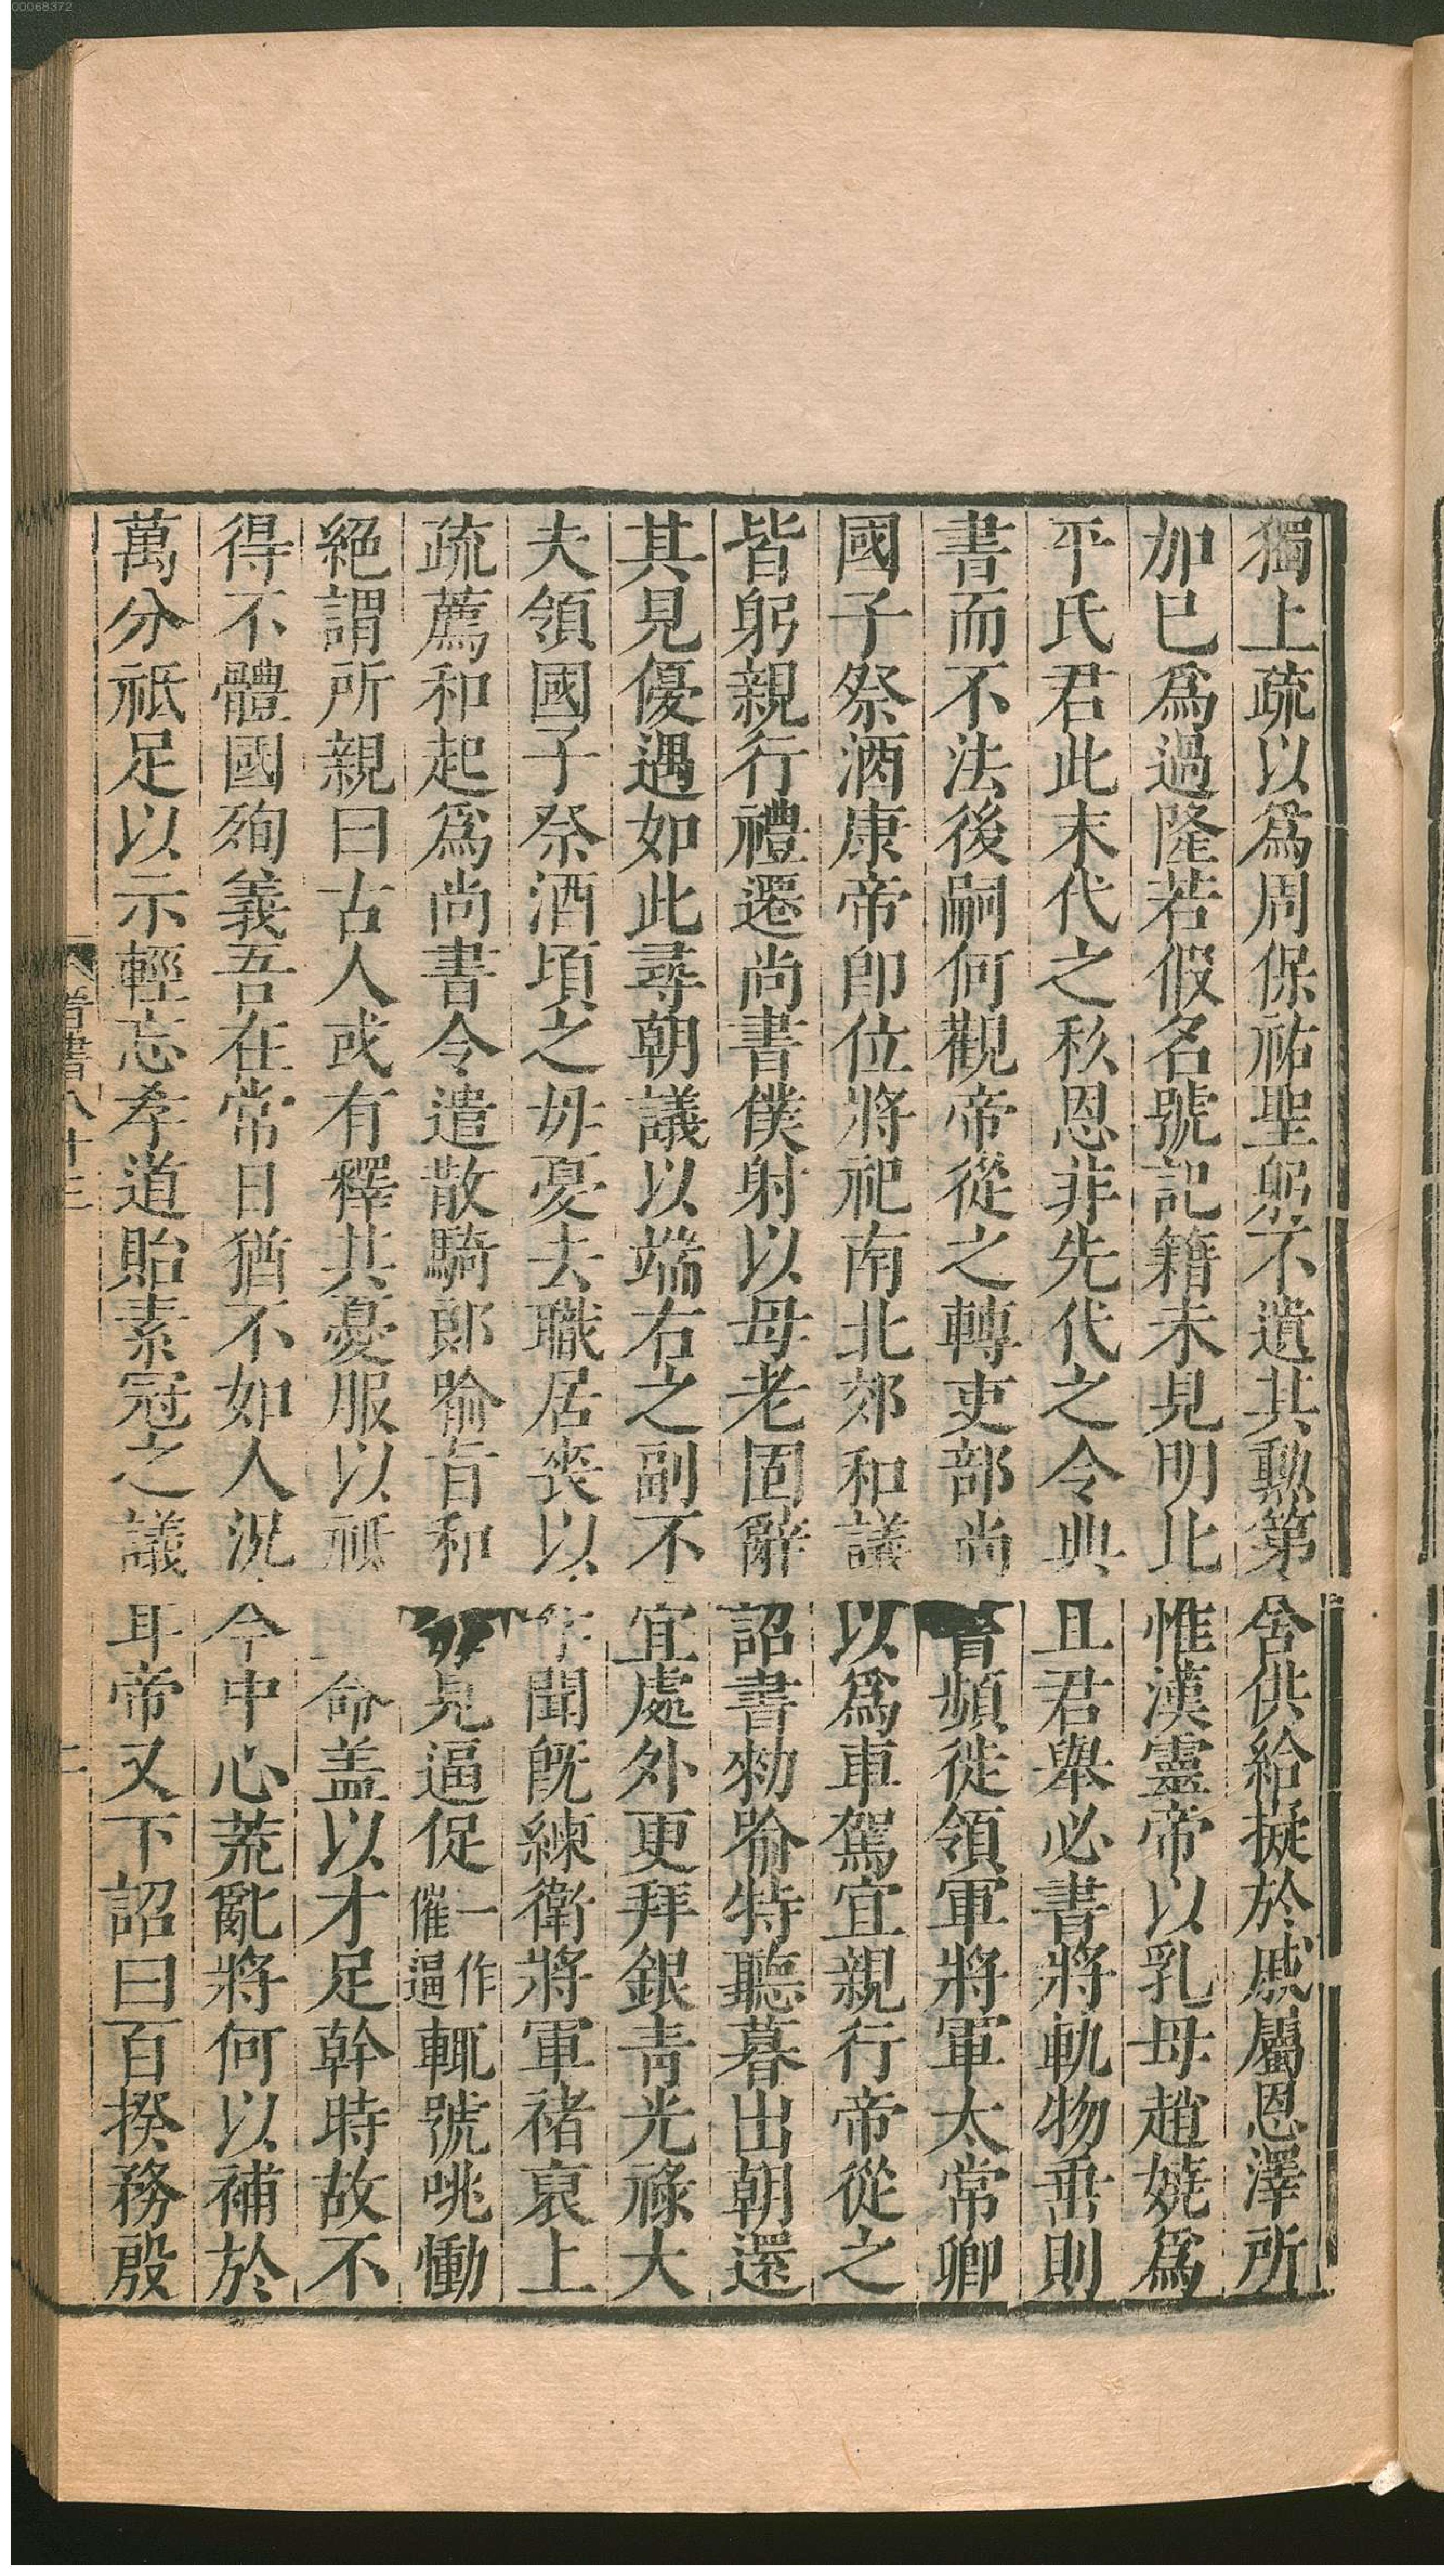 00068372
獨上疏以爲周保祐聖躬不遺其勲第舍供給擬於戚屬恩澤所
加巳爲過隆若假名號記籍未見明比惟漢靈帝以乳母趙嬈爲
平氏君此末代之私恩非先代之令典且君舉必書將軌物垂則
書而不法後嗣何觀帝從之轉吏部尚頻徙領軍將軍太常卿
國子祭酒康帝卽位將祀南北郊和議以爲車駕宜親行帝從之
皆躬親行禮遷尚書僕射以母老固辭詔書勑喻特聽暮出朝還
其見優遇如此尋朝議以端右之副不宜處外更拜銀青光祿大
夫領國子祭酒頃之母憂去職居喪以聞旣練衛將軍褚裒上
疏薦和起爲尚書令遣散騎郎喻旨和見逼促一作催逼輒號咷慟
絕謂所親曰古人或有釋其憂服以祗命盖以才足幹時故不
得不體國殉義吾在常日猶不如人況今中心荒亂將何以補於
萬分祗足以示輕忘孝道貽素冠之議耳帝又下詔曰百揆務殷
晉書八十三
二